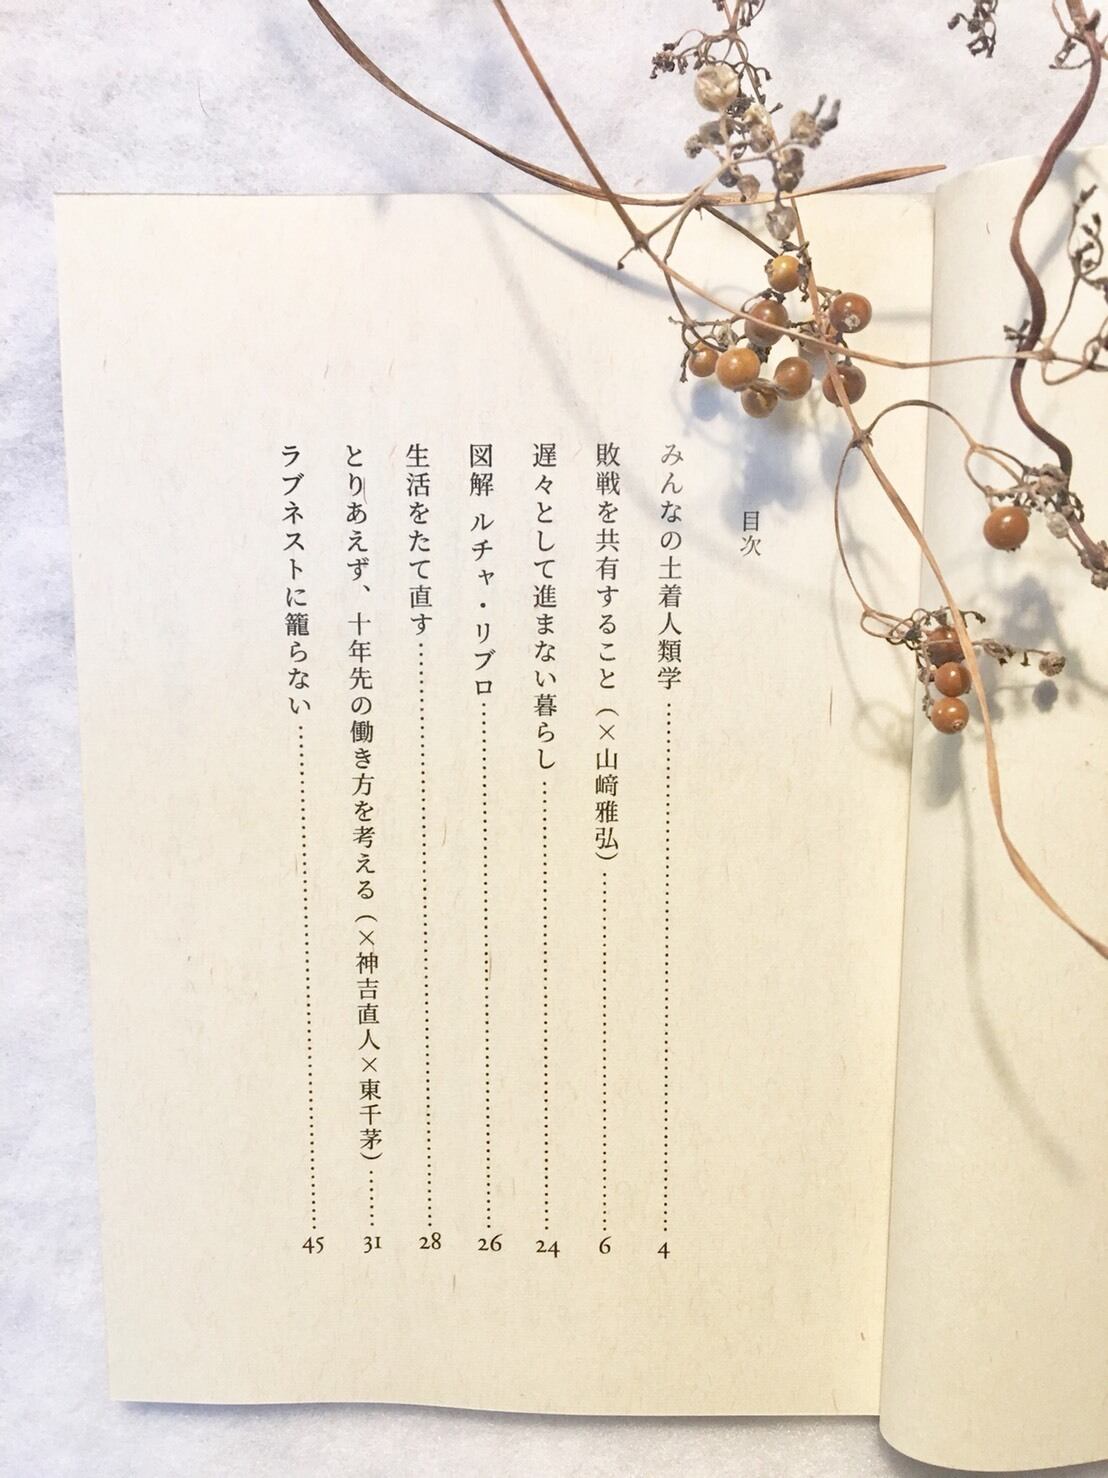 目次
みんなの土着人類学……4
敗戦を共有すること(×山﨑雅弘)……6
遅々として進まない暮らし……24
図解 ルチャ・リブロ……26
生活をたて直す……28
とりあえず、十年先の働き方を考える(×神吉直人×東千茅)……31
ラブネストに籠らない……45